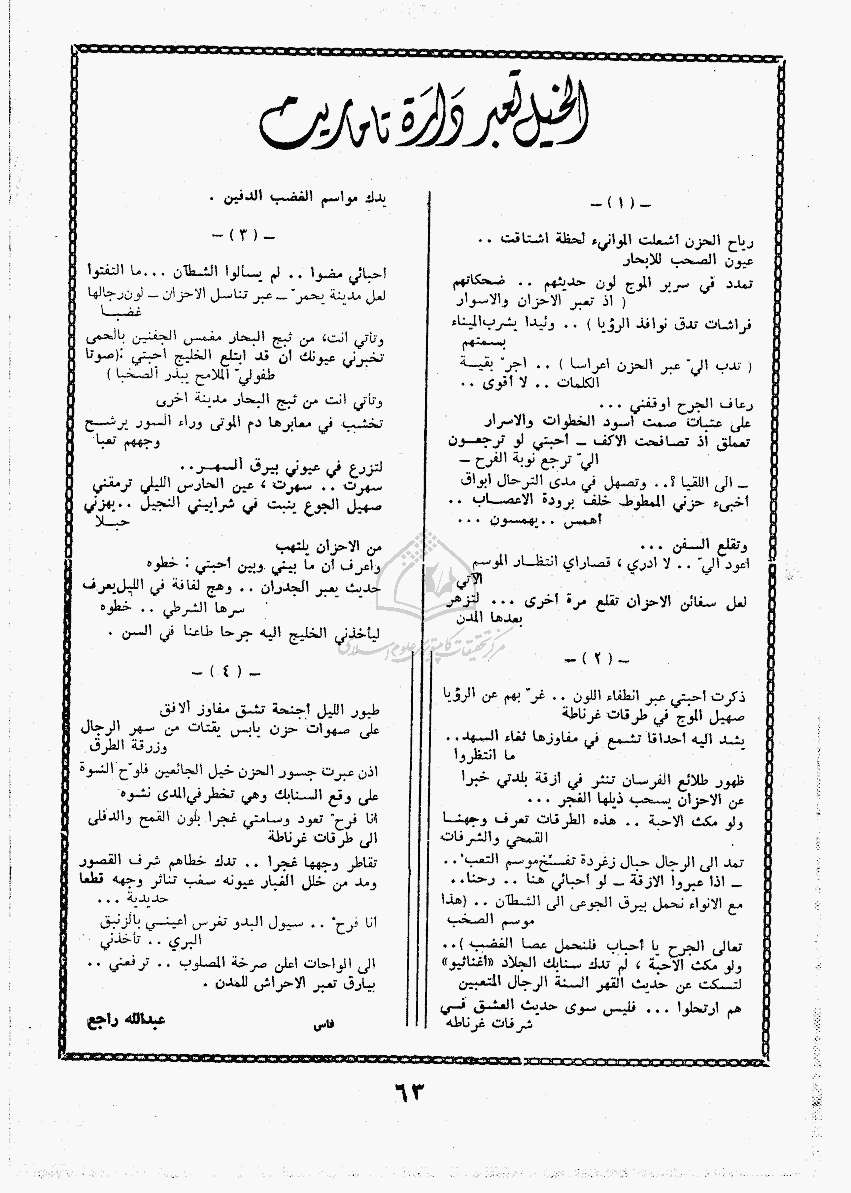 الخيل تعبر دارة تاماريت
- (١) -
رياح الحزن أشعلت الموانىء لحظة اشتاقت ..
عيون الصحب للابحار
تمدد في سرير الموج لون حديثهم .. ضحكاتهم
( اذ تعبر الاحزان والاسوار
فراشات تدق نوافذ الرؤيا ) .. وئيدا يشرب الميناء
بسمتهم
( تدب الي عبر الحزن اعراسا ) .. اجر بقيــة
الكلمات .. لا أقوى ..
رعاف الجرح اوقفني ...
على عتبات صمت أسود الخطوات والاسرار
تعملق اذ تصافحت الاكف - أحبتي لو ترجعــون
الي ترجع نوبة الفرح -
- الى اللقيا ؟.. وتصهل في مدى الترحال ابواق
أخبىء حزني الممطوط خلف برودة الاعصــاب ..
أهمس .. يهمسون ...
وتقلع السفن ...
اعود الي .. لا ادري ، قصاراي انتظــار الموسم
الآتي
لعل سفائن الاحزان تقلع مرة أخرى ... لتزهر
بعدها المدن
- (٢) -
ذكرت أحبتي عبر انطفاء اللون .. غر بهم عن الرؤيا
صهيل الموج في طرقات غرناطة
يشد اليه أحداقا تشمع في مفاوزها ثغاء السهد..
ما انتظروا
ظهور طلائع الفرسان تنثر في ازقة بلدتي خبرا
عن الاحزان يسحب ذيلها الفجر ...
ولو مكث الاحبة .. هذه الطرقات تعرف وجهنــا
القمحي والشرفات
تمد الى الرجال حبال زغردة تفسخ موسم التعب..
- اذا عبروا الازقة - لو أحبائي هنا .. رحنا..
مع الانواء نحمل بيرق الجوعى الى الشطآن .. (هذا
موسم الصخب
تعالى الجرح يا أحباب فلنحمل عصا الغضب )..
ولو مكث الاحبة ، لم تدك سنابك الجلاد «أغنائيو»
لتسكت عن حديث القهر السنة الرجال المتعبين
هم ارتحلوا ... فليس سوى حديث العشق فــي
شرفات غرناطه
يدك مواسم الغضب الدفين .
- (٣) -
أحبائي مضوا .. لم يسألوا الشطآن ...ما التفتوا
لعل مدينة يحمر - عبر تناسل الاحزان - لون رجالها
غضبــا
وتأتي أنت، من ثبج البحار مغمس الجفنين بالحمى
تخبرني عيونك ان قد ابتلع الخليج أحبتي :(صوتا
طفولي الملامح يبذر الصخبا )
وتأتي انت من ثبج البحار مدينة اخرى
تخشب في معابرها دم الموتى وراء السور يرشــح
وجههم تعبا
لتزرع في عيوني بيرق السهر..
سهرت .. سهرت ، عين الحارس الليلي ترمقني
صهيل الجوع ينبت في شراييني النجيل ..يهزني
حبــلا
من الاحزان يلتهب
وأعرف أن ما بيني وبين أحبتي : خطوه
حديث يعبر الجدران .. وهج لفافة في الليل يعرف
سرها الشرطي .. خطوه
ليأخذني الخليج اليه جرحا طاعنا في السن .
- (٤) -
طيور الليل أجنحة تشق مفاوز الافق
على صهوات حزن يابس يقتات من سهر الرجال
وزرقة الطرق
اذن عبرت جسور الحزن خيل الجائعين فلوح النسوة
على وقع السنابك وهي تخطر في المدى نشوه
انا فرح تعود وسامتي غجرا بلون القمح والدفلى
الى طرقات غرناطة
تقاطر وجهها غجرا .. تدك خطاهم شرف القصور
ومد من خلل الغبار عيونه سغب تناثر وجهه قطعا
حديدية ...
انا فرح .. سيول البدو تغرس اعينــي بالزنبق
البري .. تأخذني
الى الواحات اعلن صرخة المصلوب .. ترفعني ..
بيارق تعبر الاحراش للمدن .
فاس
عبدالله راجع
٦٣
مركز تحقيقات كامپيوترى علوم اسلامى